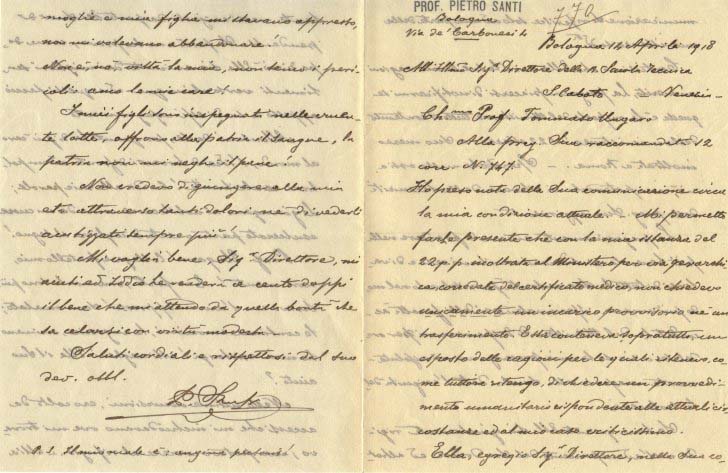 moglie e mia figlia mi stavano appresso,
non mi volevano abbandonare!
Non è nò viltà la mia, non temo i peri-
coli: amo le mie care!
I miei figli sono impegnati nella cruen-
te lotta, offrono alla patria il sangue, la
patria non mi neghi il pane!
Non credevo di giungere alla mia
età attraverso tanti dolori, nè di vederli
acutizzati sempre più!
Mi voglia bene, Sig.r Direttore, mi
aiuti ed Iddio le renderà a cento doppi
il bene che mi attendo da quella bontà che
sa celarsi con virtù modesta
Saluti cordiali e rispettosi dal suo
dev. obbl.
P. Santi
P.S. Il mio male è: angina pectoris
PROF. PIETRO SANTI
Bologna
Via de' Carbonesi 4
770
Bologna 14 Aprile 1918
All'Ill.mo Sig.r Direttore della R. Scuola Tecnica
S. Caboto Venezia
Ch.mo Prof. Tommaso Ungaro
Alla preg. Sua raccomandata 12
corr. N. 747.
Ho preso nota della Sua comunicazione circa
la mia condizione attuale. – Mi permetto
farle presente che con la mia istanza del
22 p.p. inoltrata al Ministero per via gerarchi
ca corredata del certificato medico, non chiedevo
unicamente un incarico provvisorio nè un
trasferimento. Essa conteneva sopratutto, un
esposto delle ragioni per le quali ritenevo, co
me tuttora ritengo, di chiedere un provvedi
mento umanitario rispondente alle attuali cir
costanze ed al mio caso criticissimo.
Ella, egregio Sig.r Direttore, nella Sua co-